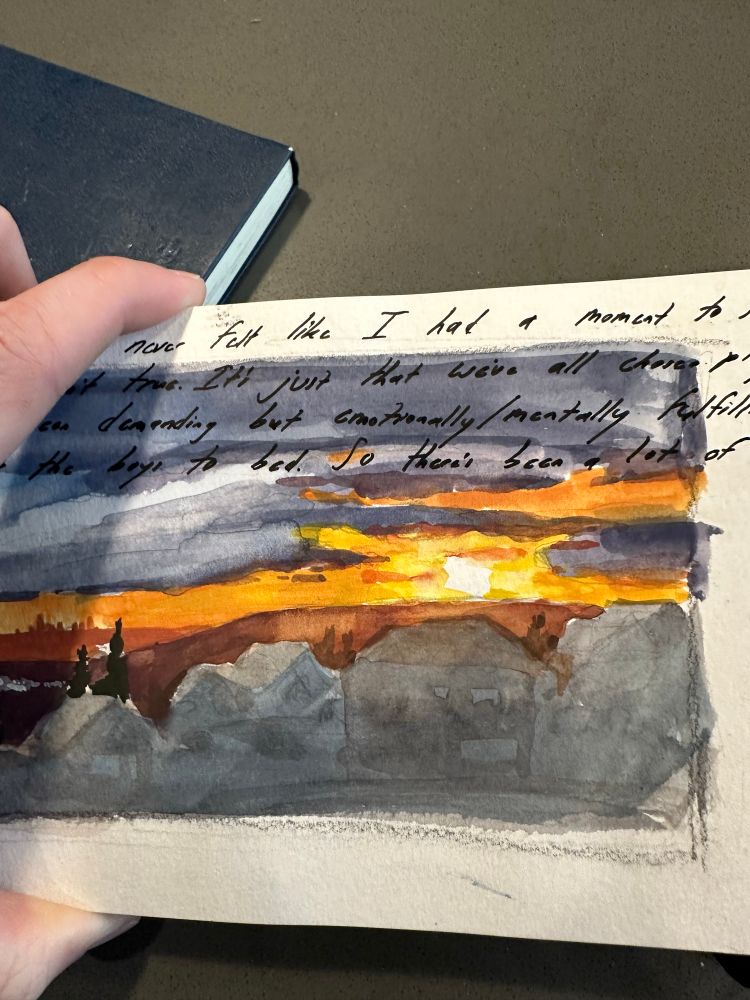 never felt like I had a moment to
true. It's just that we've all chosen
demanding but emotionally/mentally
the boys to bed. So there's been a lot of